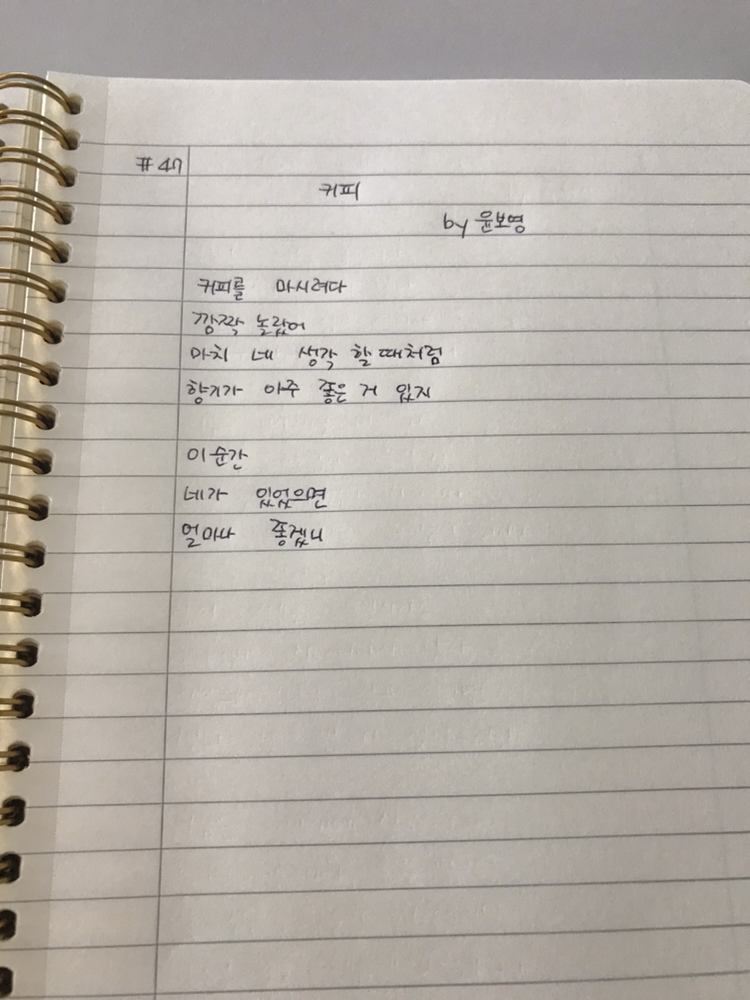 #47
커피
by 윤보영
커피를 마시려다
깜짝 놀랐어
마치 네 생각 할 때처럼
향기가 아주 좋은 거 있지
이 순간
네가 있었으면
얼마나 좋겠니